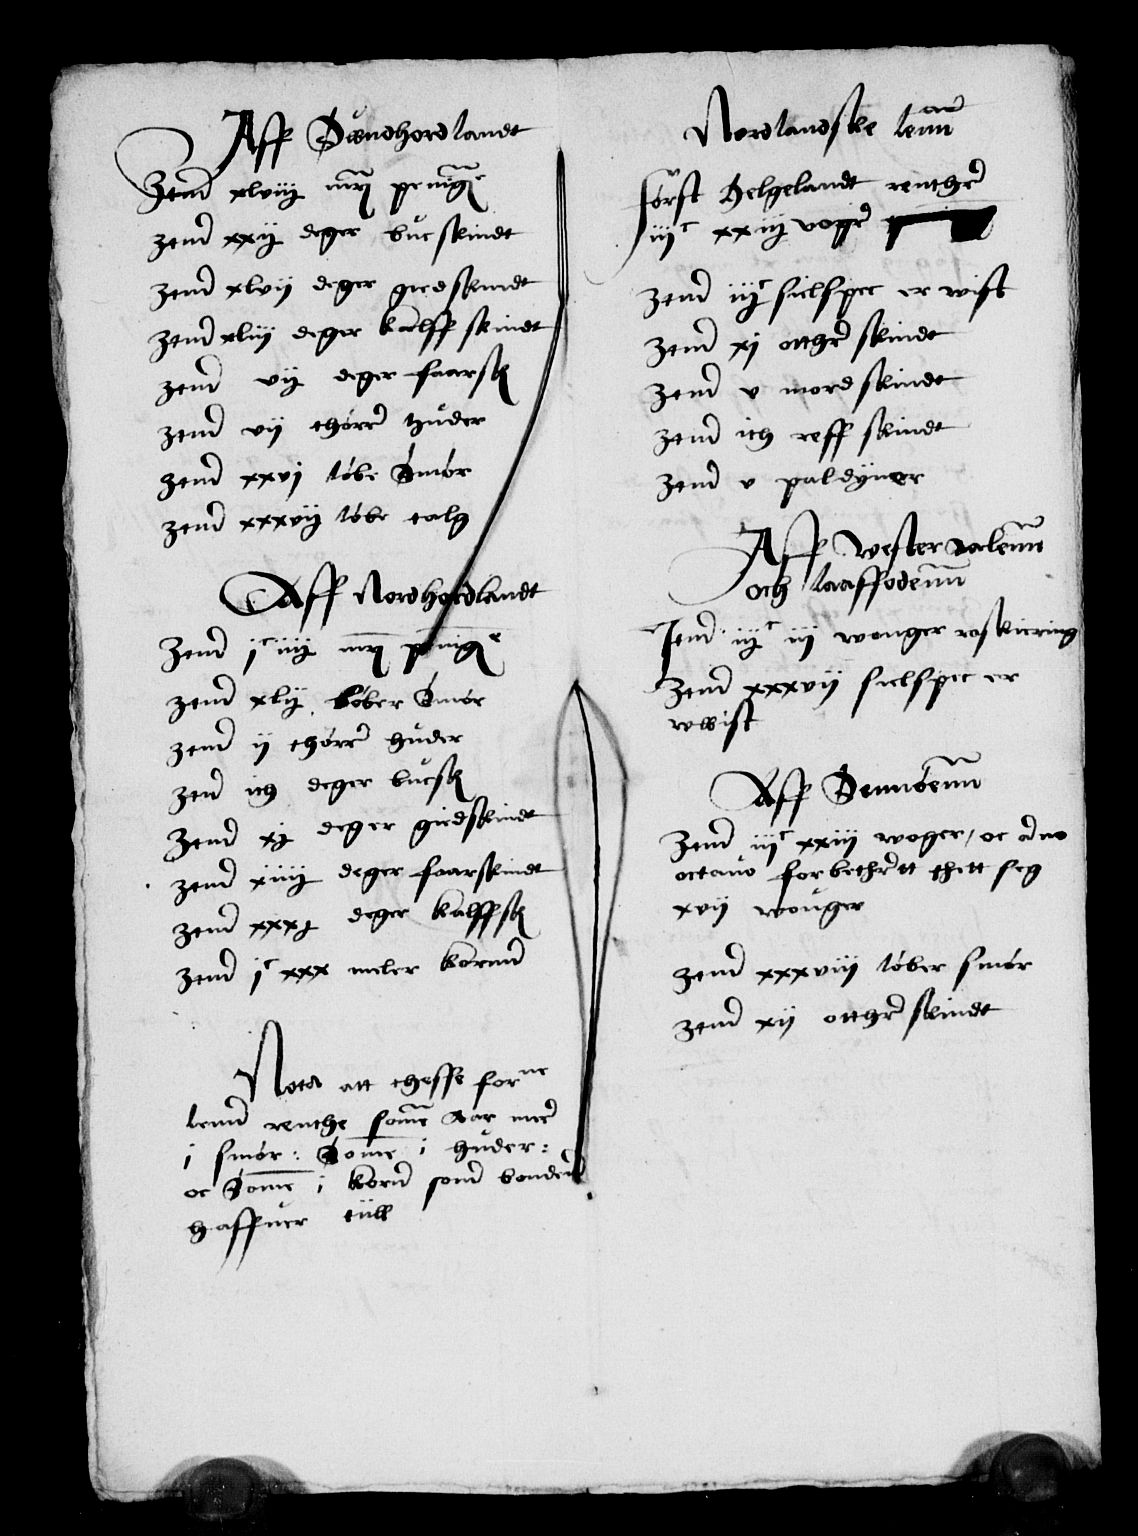 Aff Swndhordlandt
Item xlviij mrk penige
Item xxij deger bucskindt
Item xlvij deger giedskindt
Item xliij deger kalffskindt
Item vij deger faarsk
Item vij thørre huder
Item xxvj løbe Smør
Item xxxvij løbe talg
Aff Nordhordlandt
Item jc iiij mrk penige
Item xlij løber Smør
Item ij thørre huder
Item ith deger bucsk
Item xj deger giedskindt
Item xiiij deger faarskindt
Item xxxj deger kalffsk
Item jc xxx meler kornn
Nota att thesse forne
lenn renthe some aar mer
i smør: Some i huder:
oc Some i korn som bonden
haffuer tiill
Nordlandske lenn
først Helgelandt renther
iijc xxiij voger
Item iijc sielspec er wist
Item xj otther skindt
Item v mord skindt
Item ith reff skindt
Item v paldyner
Aff westeraalenn
och laaffodenn
Item iijc iij wonger raskiering
Item xxxvij sielspec er
wwist
Aff Sennøenn
Item iijc xxiij woger, oc
octauo forbethrett thett seg
xvij wouger
Item xxxviij løber smør
Item xij otther skindt